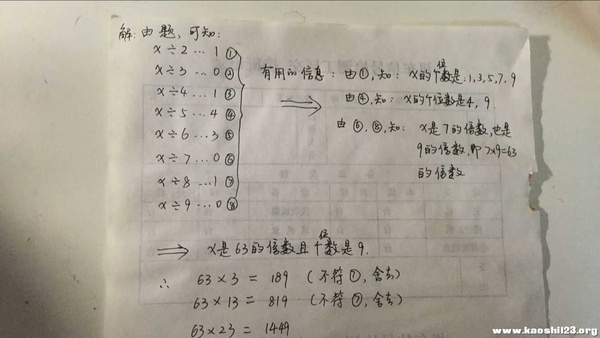 解:由题,可知:
x÷2 … 1 ①
x÷3 … 0 ②
x÷4 … 1 ③
x÷5 … 4 ④
x÷6 … 3 ⑤
x÷7 … 0 ⑥
x÷8 … 1 ⑦
x÷9 … 0 ⑧
⇒ 有用的信息: 由①,知: x的个位数是:1,3,5,7,9
由④,知: x的个位数是4, 9.
由⑥,⑧,知: x是7的倍数,也是
9的倍数,即7×9=63
的倍数
⇒ x是63的倍数且个位数是9.
∴ 63×3 = 189 (不符⑦,舍去)
63×13 = 819 (不符⑦,舍去)
63×23 = 1449
www.kaoshi123.org